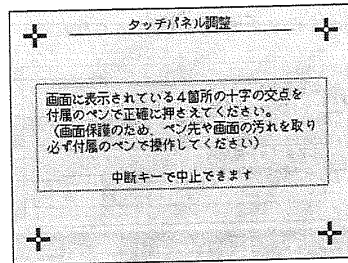 タッチパネル調整
画面に表示されている４箇所の十字の交点を
付属のペンで正確に押さえてください。
（画面保護のため、ペン先や画面の汚れを取り
必ず付属のペンで操作してください）
中断キーで中止できます